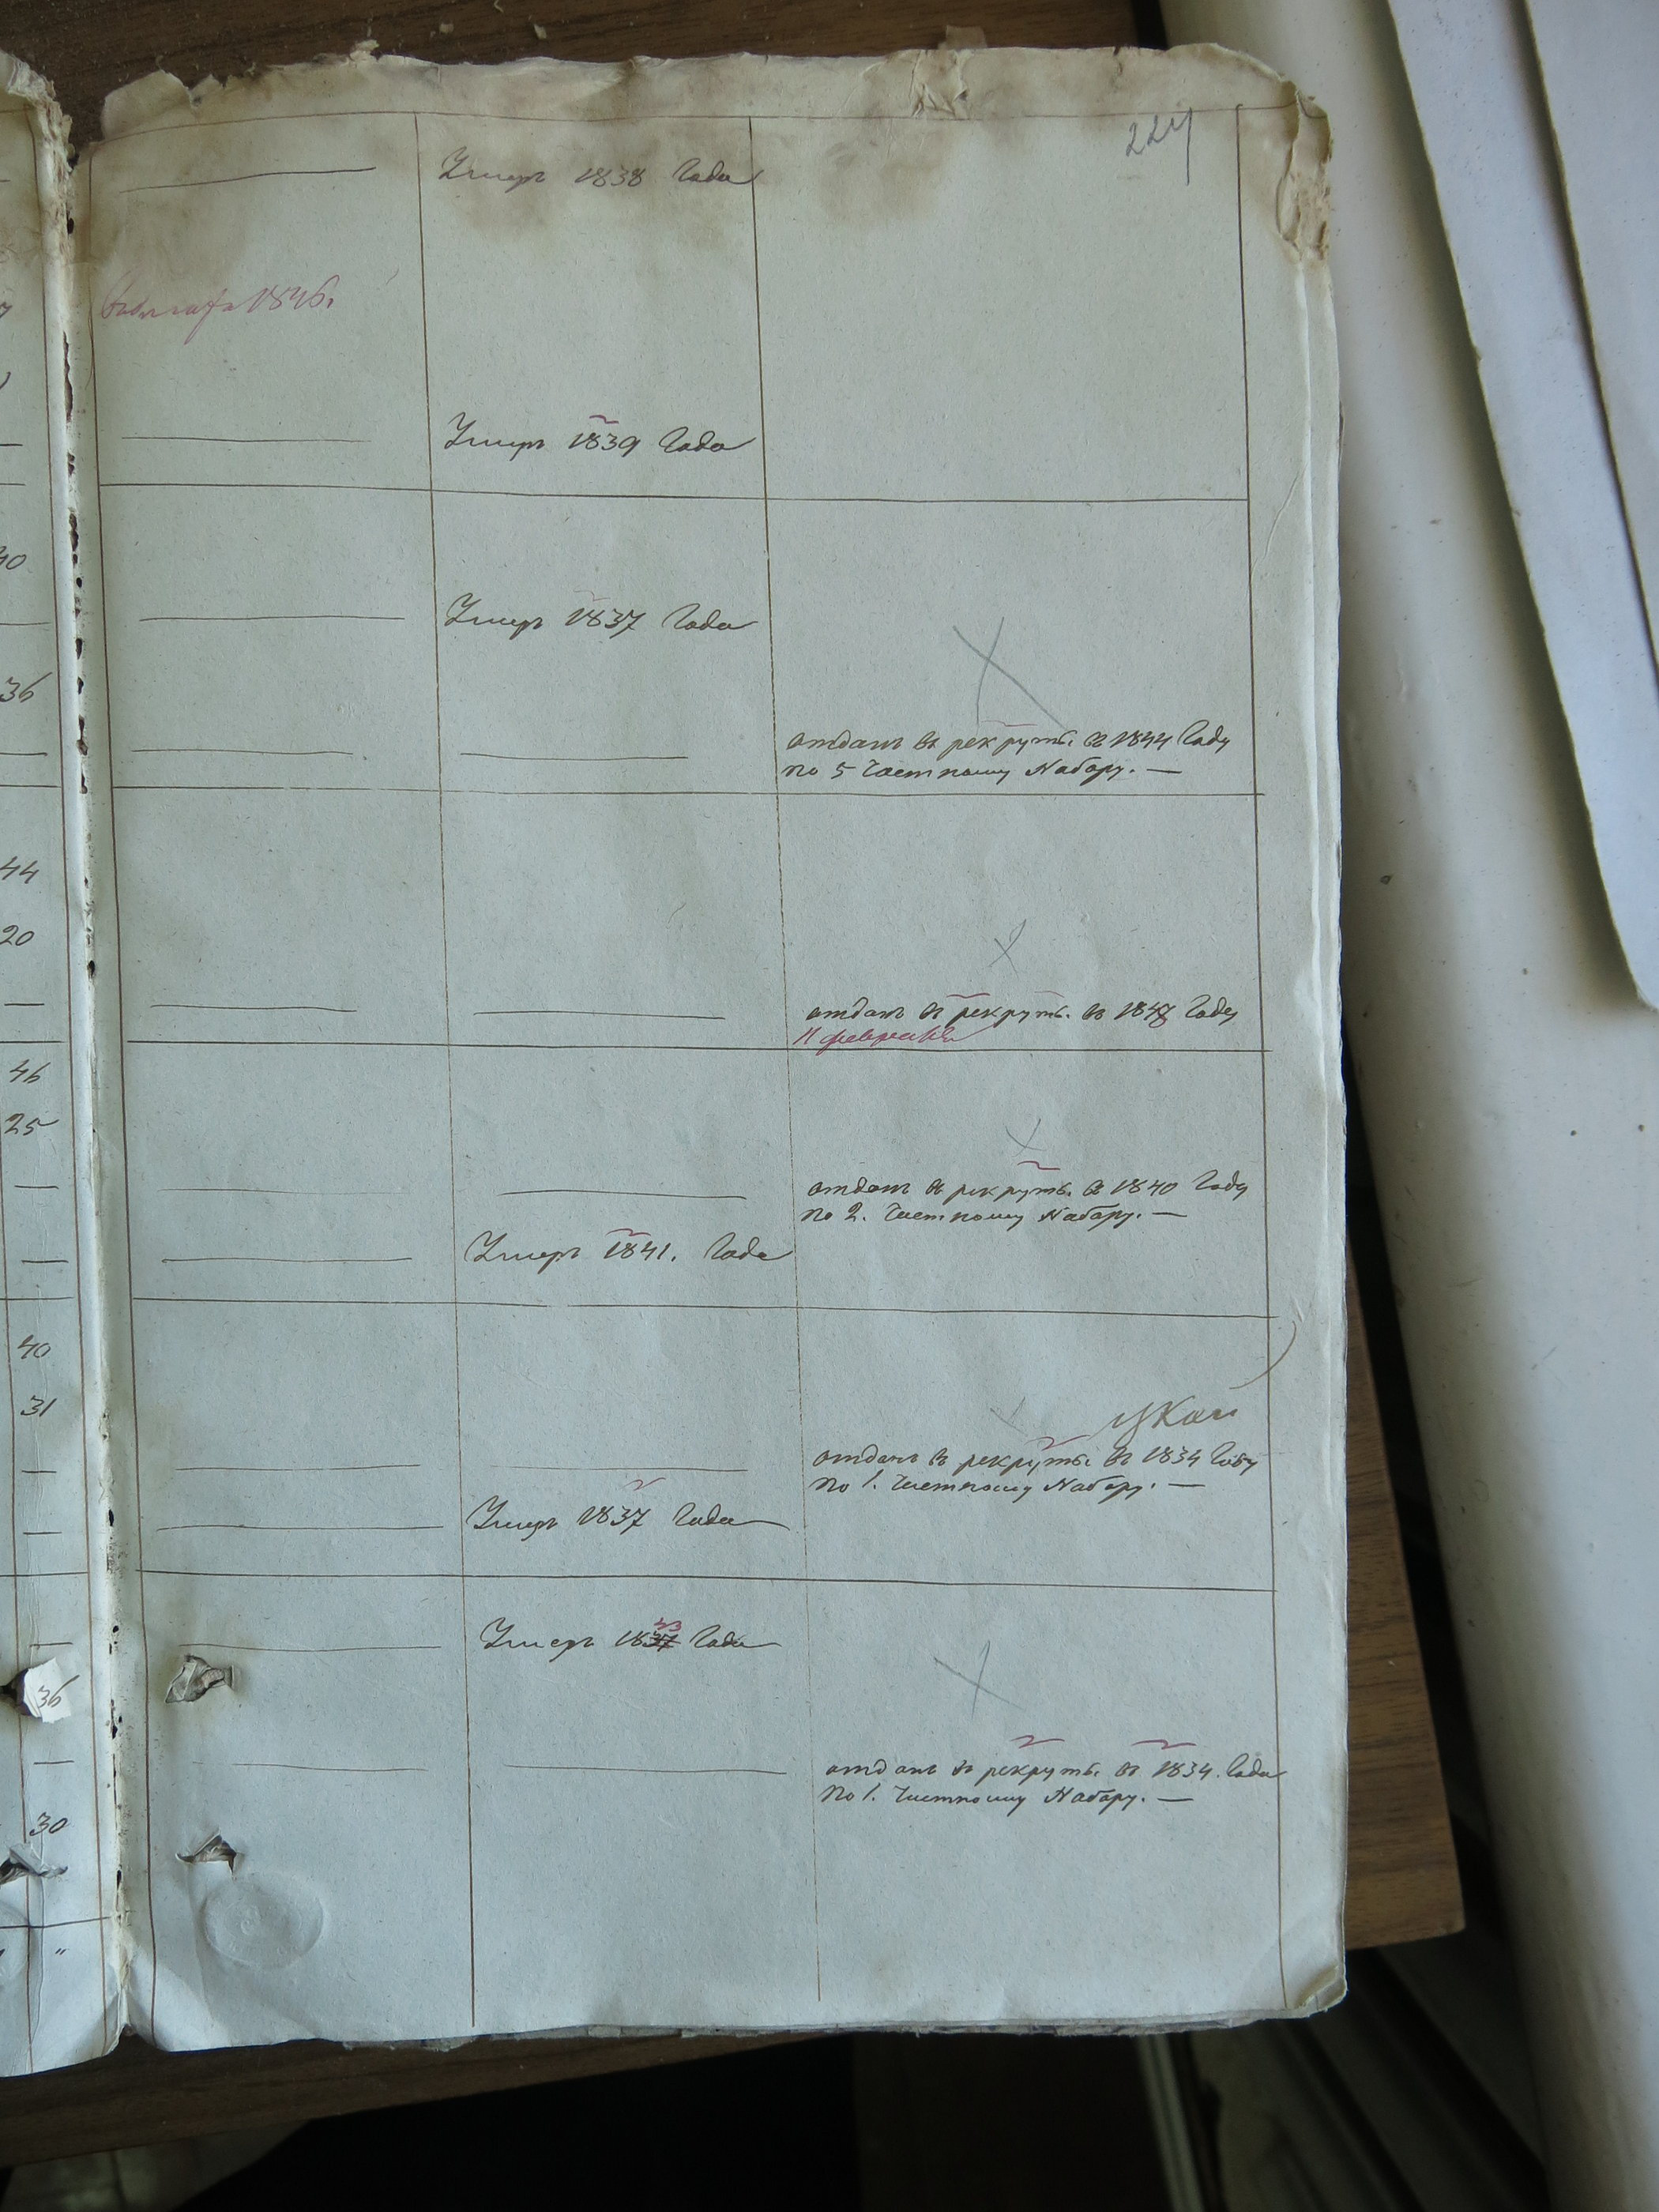 224
Умеръ 1838 Года
1846.
Умеръ 1839 Года
40
Умеръ 1837 Года
36
отданъ въ рекруты въ 1844 Году
по 5 Частному Набору. —
44
20
отданъ въ рекруты. въ 1847 Году
11 февраля
46
25
отданъ въ рекруты. въ 1840 Году
по 2. Частному Набору. —
Умеръ 1841. Года
40
31
отданъ въ рекруты въ 1834 Году
по 1. Частному Набору. —
Умеръ 1837 Года
43
Умеръ 1837 Года
36
отданъ въ рекруты. въ 1834. Года
по 1. Частному Набору. —
30
"